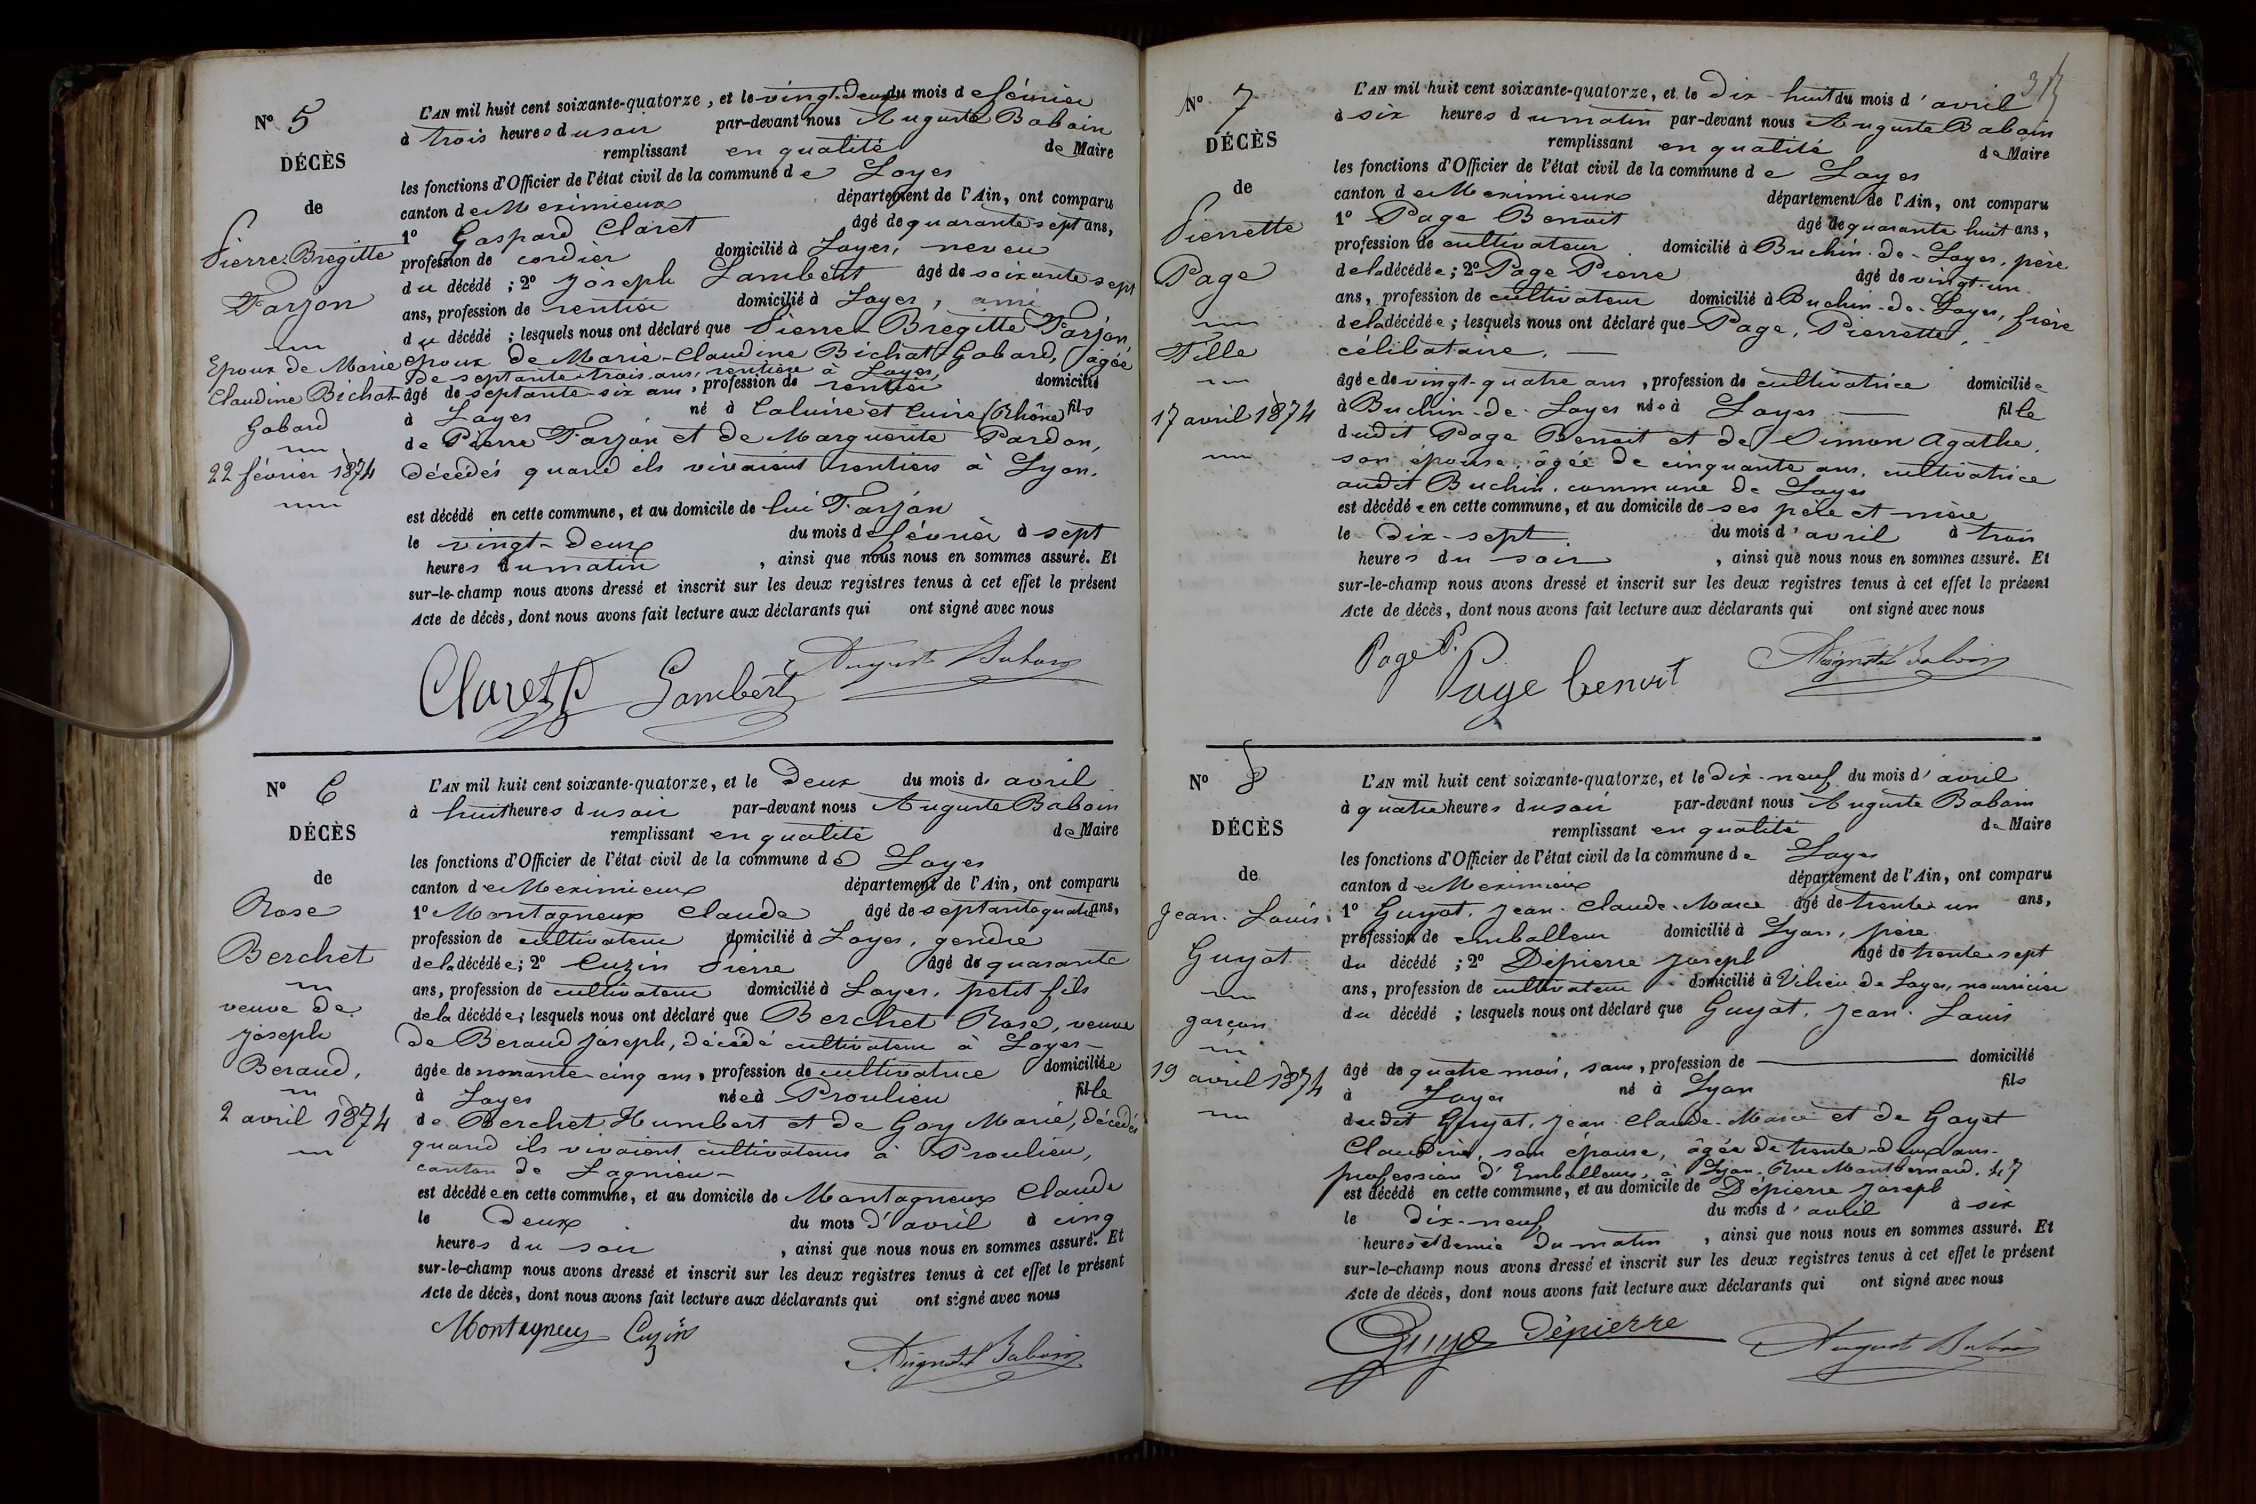 Nº 5
DÉCÈS
de
Pierre Brégitte
Farjon
Epoux de Marie
Claudine Bichat
Gobard
22 février 1874
L'AN mil huit cent soixante-quatorze, et le vingt-deux du mois de février
à trois heures du soir par-devant nous Auguste Baboin
remplissant en qualité de Maire
les fonctions d'Officier de l'état civil de la commune de Loyes
canton de Meximieux département de l'Ain, ont comparu
1º Gaspard Claret âgé de quarante sept ans,
profession de cordier domicilié à Loyes, neveu
du décédé ; 2º Joseph Lambert âgé de soixante sept
ans, profession de rentier domicilié à Loyes, ami
du décédé ; lesquels nous ont déclaré que Pierre Brégitte Farjon,
époux de Marie-Claudine Bichat-Gobard, âgée
de septante-trois ans, rentière à Loyes,
âgé de septante-six ans, profession de rentier domicilié
à Loyes né à Caluire et Cuire (Rhône) fils
de Pierre Farjon et de Marguerite Pardon,
décédés quand ils vivaient rentiers à Lyon.
est décédé en cette commune, et au domicile de lui Farjon
le vingt-deux du mois de février à sept
heures du matin, ainsi que nous nous en sommes assuré. Et
sur-le-champ nous avons dressé et inscrit sur les deux registres tenus à cet effet le présent
Acte de décès, dont nous avons fait lecture aux déclarants qui ont signé avec nous
Claret Lambert Auguste Baboin
Nº 6
DÉCÈS
de
Rose
Berchet
veuve de
Joseph
Beraud,
2 avril 1874
L'AN mil huit cent soixante-quatorze, et le deux du mois de avril
à huit heures du soir par-devant nous Auguste Baboin
remplissant en qualité de Maire
les fonctions d'Officier de l'état civil de la commune de Loyes
canton de Meximieux département de l'Ain, ont comparu
1º Montagneux Claude âgé de septante quatre ans,
profession de cultivateur domicilié à Loyes, gendre
de la décédée ; 2º Cuzin Pierre âgé de quarante
ans, profession de cultivateur domicilié à Loyes, petit fils
de la décédée ; lesquels nous ont déclaré que Berchet Rose, veuve
de Beraud Joseph, décédé cultivateur à Loyes
âgée de nonante-cinq ans, profession de cultivatrice domiciliée
à Loyes née à Proulieu fille
de Berchet Humbert et de Goy Marie, décédés
quand ils vivaient cultivateurs à Proulieu,
canton de Lagnieu
est décédée en cette commune, et au domicile de Montagneux Claude
le deux du mois d'avril à cinq
heures du soir, ainsi que nous nous en sommes assuré. Et
sur-le-champ nous avons dressé et inscrit sur les deux registres tenus à cet effet le présent
Acte de décès, dont nous avons fait lecture aux déclarants qui ont signé avec nous
Montagneux Cuzin
Auguste Baboin
Nº 7
DÉCÈS
de
Pierrette
Page
Fille
17 avril 1874
L'AN mil huit cent soixante-quatorze, et le dix-huit du mois d'avril
à six heures du matin par-devant nous Auguste Baboin
remplissant en qualité de Maire
les fonctions d'Officier de l'état civil de la commune de Loyes
canton de Meximieux département de l'Ain, ont comparu
1º Page Benoit âgé de quarante huit ans,
profession de cultivateur domicilié à Buchin-de-Loyes, père
de la décédée ; 2º Page Pierre âgé de vingt-un
ans, profession de cultivateur domicilié à Buchin-de-Loyes, frère
de la décédée ; lesquels nous ont déclaré que Page, Pierrette,
célibataire,
âgée de vingt-quatre ans, profession de cultivatrice domiciliée
à Buchin-de-Loyes née à Loyes fille
dudit Page Benoit et de Simon Agathe,
son épouse, âgée de cinquante ans, cultivatrice
audit Buchin, commune de Loyes
est décédée en cette commune, et au domicile de ses père et mère
le dix-sept du mois d'avril à trois
heures du soir, ainsi que nous nous en sommes assuré. Et
sur-le-champ nous avons dressé et inscrit sur les deux registres tenus à cet effet le présent
Acte de décès, dont nous avons fait lecture aux déclarants qui ont signé avec nous
Page P. Page benoit Auguste Baboin
Nº 8
DÉCÈS
de
Jean-Louis
Guyot
garçon
19 avril 1874
L'AN mil huit cent soixante-quatorze, et le dix-neuf du mois d'avril
à quatre heures du soir par-devant nous Auguste Baboin
remplissant en qualité de Maire
les fonctions d'Officier de l'état civil de la commune de Loyes
canton de Meximieux département de l'Ain, ont comparu
1º Guyot, Jean-Claude-Marie âgé de trente un ans,
profession de emballeur domicilié à Lyon, père
du décédé ; 2º Dépierre Joseph âgé de trente sept
ans, profession de cultivateur domicilié à Vilieu de Loyes, nourricier
du décédé ; lesquels nous ont déclaré que Guyot, Jean-Louis
âgé de quatre mois, sans, profession de domicilié
à Loyes né à Lyon fils
dudit Guyot, Jean-Claude-Marie et de Goyet
Claudine, son épouse, âgée de trente-deux ans
profession d'Emballeur, à Lyon, Rue Montbernard, 47
est décédé en cette commune, et au domicile de Dépierre Joseph
le dix-neuf du mois d'avril à six
heures et demie du matin, ainsi que nous nous en sommes assuré. Et
sur-le-champ nous avons dressé et inscrit sur les deux registres tenus à cet effet le présent
Acte de décès, dont nous avons fait lecture aux déclarants qui ont signé avec nous
Guyot Dépierre Auguste Baboin